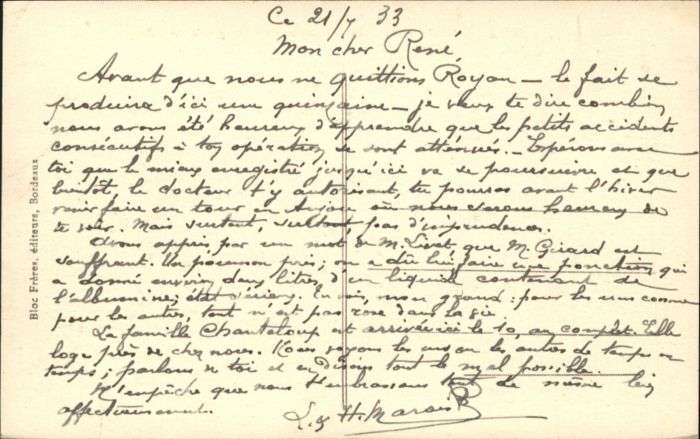 Ce 21/7 33
Mon cher René,
Avant que nous ne quittions Royan — le fait se
produira d'ici une quinzaine — je veux te dire combien
nous avons été heureux d'apprendre que les petits accidents
consécutifs à ton opération se sont atténués. Espérons avec
toi que le mieux enregistré jusqu'ici va se poursuivre et que
bientôt, le docteur t'y autorisant, tu pourras avant l'hiver
venir faire un tour en Anjou où nous serons heureux de
te voir. Mais surtout, surtout, pas d'imprudence.
Avons appris, par un mot de M. Livet, que M. Girard est
souffrant. Un poumon pris; on a dû lui faire une ponction qui
a donné environ deux litres d'un liquide contenant de
l'albumine; état sérieux. Tu vois, mon grand: pour les uns comme
pour les autres, tout n'est pas rose dans la vie.
La famille Chanteloup est arrivée ici le 10, au complet. Elle
loge près de chez nous. Nous voyons les uns ou les autres de temps en
temps; parlons de toi et en disons tout le mal possible.
N'empêche que nous t'embrassons tout de même bien
affectueusement.
L. & H. Marais
Bloc Frères, éditeurs, Bordeaux